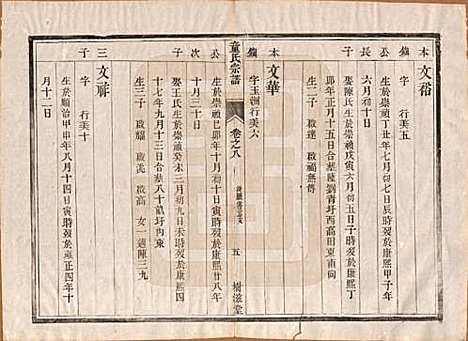 木 文裕
鏞 字 行美五
公 生於崇禎丁丑年七月初七日寅時歿於康熙甲子年
子 六月初十日
娶陳氏生於崇禎戊寅六月初五日子時歿於康熙丁
卯年正月十五日合葬陳劉青圩西高田東甫向
生二子 啟達 啟福無傳
木 文華
鏞 字玉洲行美六
公 生於崇禎己卯年二月初六日寅時歿於康熙廿八年
子 十月三十日
娶王氏生於崇禎癸未三月初九日未時歿於康熙四
十七年九月十三日合葬八十畝圩內東
生三子 啟福 啟成 啟高 女一適陳三九
三 文祥
公 字 行美十
子 生於順治甲申年八月十四日寅時歿於雍正四年十
月十二日
童氏宗譜
卷之八
五
樹滋堂